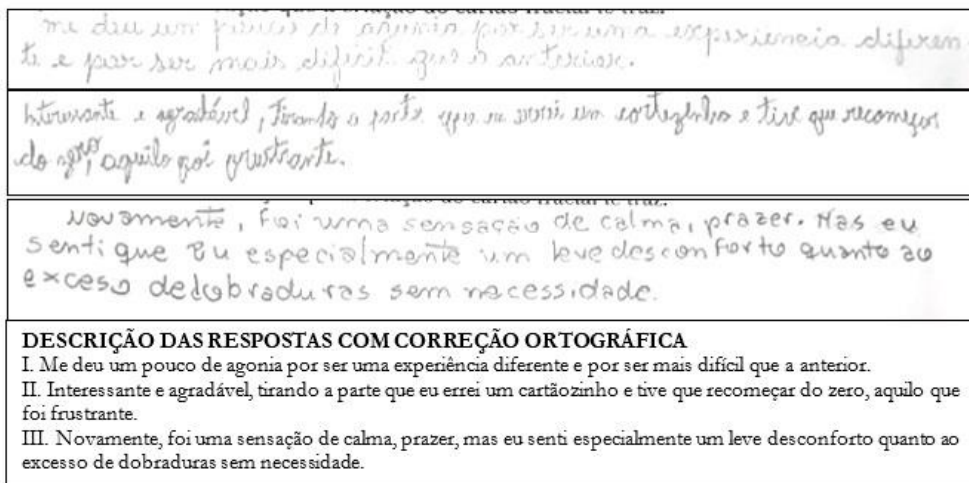 me deu um pouco de agonia por ser uma experiencia diferen
te e por ser mais dificil que a anterior.
Interessante e agradável, tirando a parte que eu errei um cortezinho e tive que recomeçar
do zero, aquilo foi frustrante.
Novamente, foi uma sensação de calma, prazer. Mas eu
senti que eu especialmente um leve desconforto quanto ao
exceso de dobraduras sem necessidade.
DESCRIÇÃO DAS RESPOSTAS COM CORREÇÃO ORTOGRÁFICA
I. Me deu um pouco de agonia por ser uma experiência diferente e por ser mais difícil que a anterior.
II. Interessante e agradável, tirando a parte que eu errei um cartãozinho e tive que recomeçar do zero, aquilo que
foi frustrante.
III. Novamente, foi uma sensação de calma, prazer, mas eu senti especialmente um leve desconforto quanto ao
excesso de dobraduras sem necessidade.